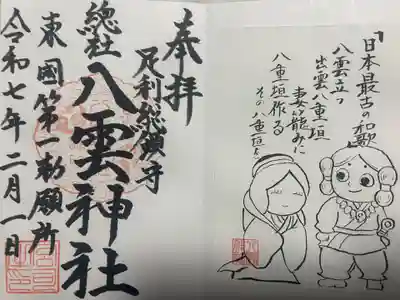 「日本最古の和歌」
八雲立つ
出雲八重垣
妻籠みに
八重垣作る
その八重垣を
奉拝
足利総鎮守
總社
八雲神社
東國第一勅願所
令和七年二月一日